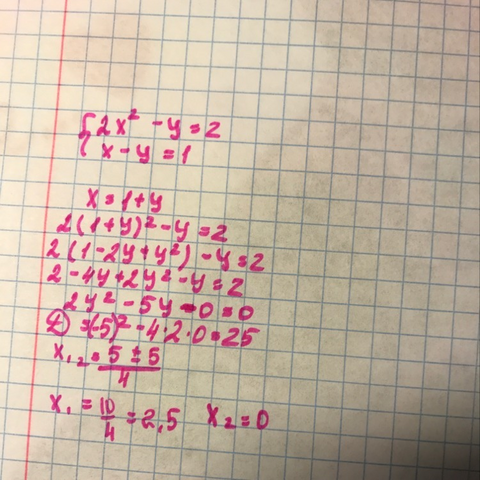 { 2x² - y = 2
x - y = 1
x = 1 + y
2(1+y)² - y = 2
2(1-2y+y²) - y = 2
2 - 4y + 2y² - y = 2
2y² - 5y - 0 = 0
D = (-5)² - 4·2·0 = 25
x₁,₂ = (5 ± 5)/4
x₁ = 10/4 = 2,5 x₂ = 0